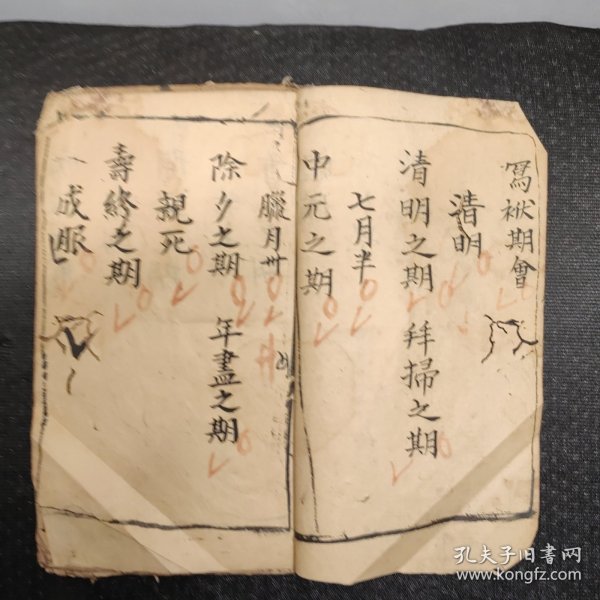 寫袱期會
清明
清明之期 拜掃之期
七月半
中元之期
臘月卅
除夕之期 年盡之期
親死
壽終之期
一成服
孔夫子旧書网
www.kongfz.com